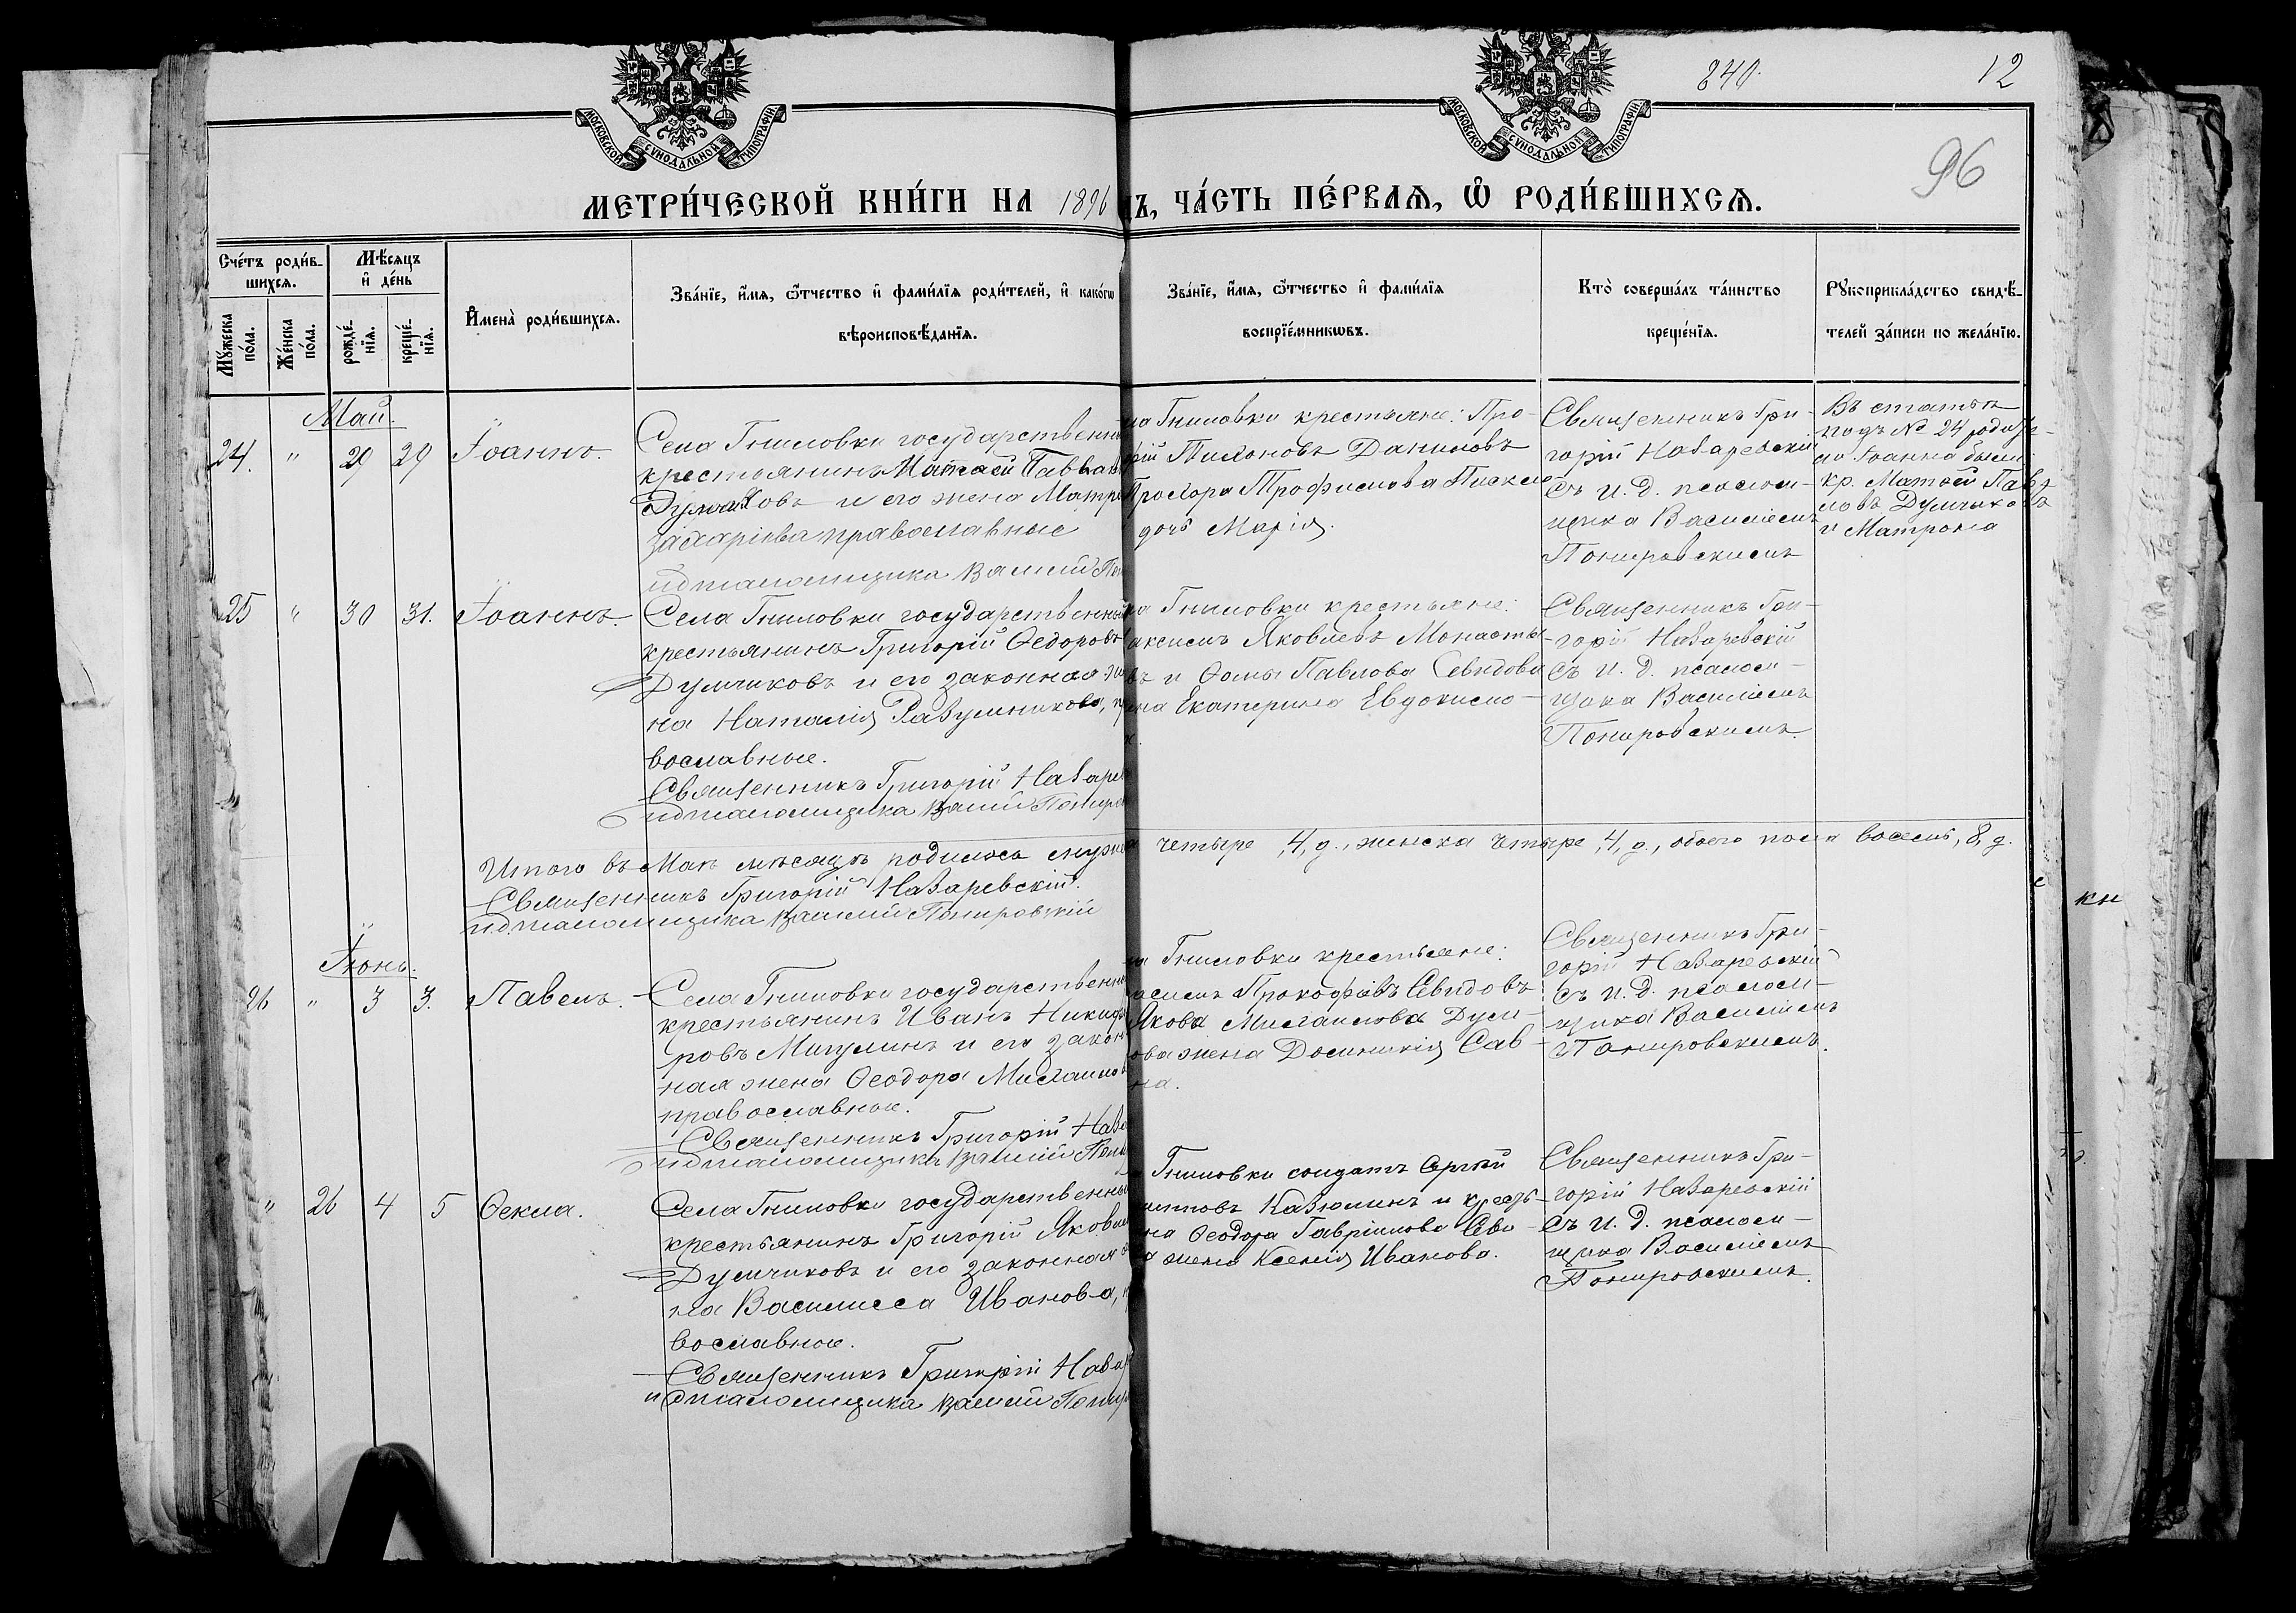 МОСКОВСКОЙ СѴНОДАЛЬНОЙ ТИПОГРАФІИ.
МОСКОВСКОЙ СѴНОДАЛЬНОЙ ТИПОГРАФІИ.
840.
12
96
МЕТРИ́ЧЕСКОЙ КНИ́ГИ НА 1896
ЧА́СТЬ ПЕ́РВАѦ, Ѡ҆ РОДИ́ВШИХСѦ.
Сче́тъ роди́в-
шихсѧ.
Мꙋ́жеска
по́ла.
Же́нска
по́ла.
Мѣ́сѧцъ
и҆ де́нь
рожде́-
нїѧ.
креще́-
нїѧ.
И҆мена̀ роди́вшихсѧ.
Зва́нїе, и҆́мѧ, ѻ҆́тчество и҆ фами́лїѧ роди́телей, и҆ како́гѡ
вѣроисповѣ́данїѧ.
Зва́нїе, и҆́мѧ, ѻ҆́тчество и҆ фами́лїѧ
воспрїе́мникѡвъ.
Кто̀ соверша́лъ та́инство
креще́нїѧ.
Рꙋкоприкла́дство свидѣ́-
телей за́писи по жела́нїю.
Май.
24. " 29 29 Іоаннъ.
Села Гниловки государственн
крестьянинъ Матѳей Павлов
и его жена Матро
Захаріева православные
на Гниловки крестьяне: Про-
фій Тихоновъ Даниловъ
Прохора Трофимова
дочь Марія.
Священникъ Гри-
горій Назаревскій
съ и. д. псалом-
щика Василіемъ
Понировскимъ
Въ статьѣ
подъ № 24
Іоанна были
кр. Матѳей Пав-
ловъ Думчиковъ
и Матрона
25 " 30 31. Іоаннъ.
Села Гниловки государственный
крестьянинъ Григорій Ѳедоровъ
Думчиковъ и его законная же
на Наталія Разумникова, пр
вославные.
Священникъ Григорій Назарев
ид псаломщика Василій Пониро
на Гниловки крестьяне:
аксимъ Яковлевъ Монасты-
въ и Ѳомы Павлова Севидова
ена Екатерина Евдокимо-
Священникъ Гри-
горій Назаревскій
съ и. д. псалом-
щика Василіемъ
Понировскимъ.
Итого въ Маѣ мѣсяцѣ родилось мужес
четыре, 4, д., женска четыре, 4, д., обоего пола восемь, 8, д.
Священникъ Григорій Назаревскій.
и.д. псаломщика Василій Понировскій
Іюнь.
26 " 3 3. Павелъ.
Села Гниловки государственн
крестьянинъ Иванъ Никифо
ровъ Мигулинъ и его закон
ная жена Ѳеодора Михаилов
православные.
Священникъ Григорій Наза
ид псаломщика Василій Пони
Гниловки крестьяне:
аксимъ Прокофьевъ Севидовъ
Якова Михаилова Дум-
ова жена Домникія Сав-
на.
Священникъ Гри-
горій Назаревскій
съ и. д. псалом-
щика Василіемъ
Понировскимъ.
" 26 4 5 Ѳекла.
Села Гниловки государственны
крестьянинъ Григорій Яковле
Думчиковъ и его законная
на Василисса Иванова, п
вославные.
Священникъ Григорій Назар
и д псаломщика Василій Пониро
Гниловки солдатъ Сергѣй
Казюлинъ и кресть-
на Ѳеодора Гавріилова Сви-
а жена Ксенія Иванова.
Священникъ Гри-
горій Назаревскій
съ и. д. псалом-
щика Василіемъ
Понировскимъ.
кн